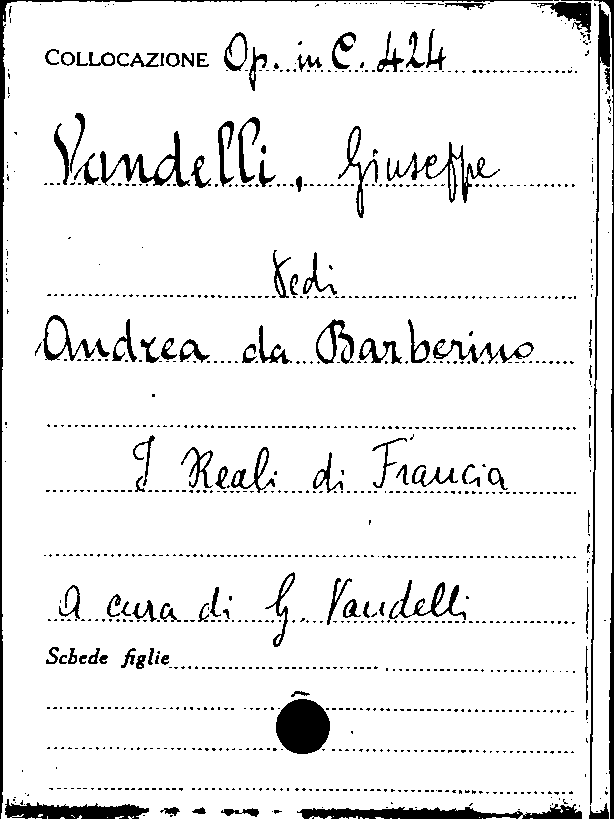 COLLOCAZIONE Op. in C. 424
Vandelli, Giuseppe
Vedi
Andrea da Barberino
I Reali di Francia
A cura di G. Vandelli
Schede figlie